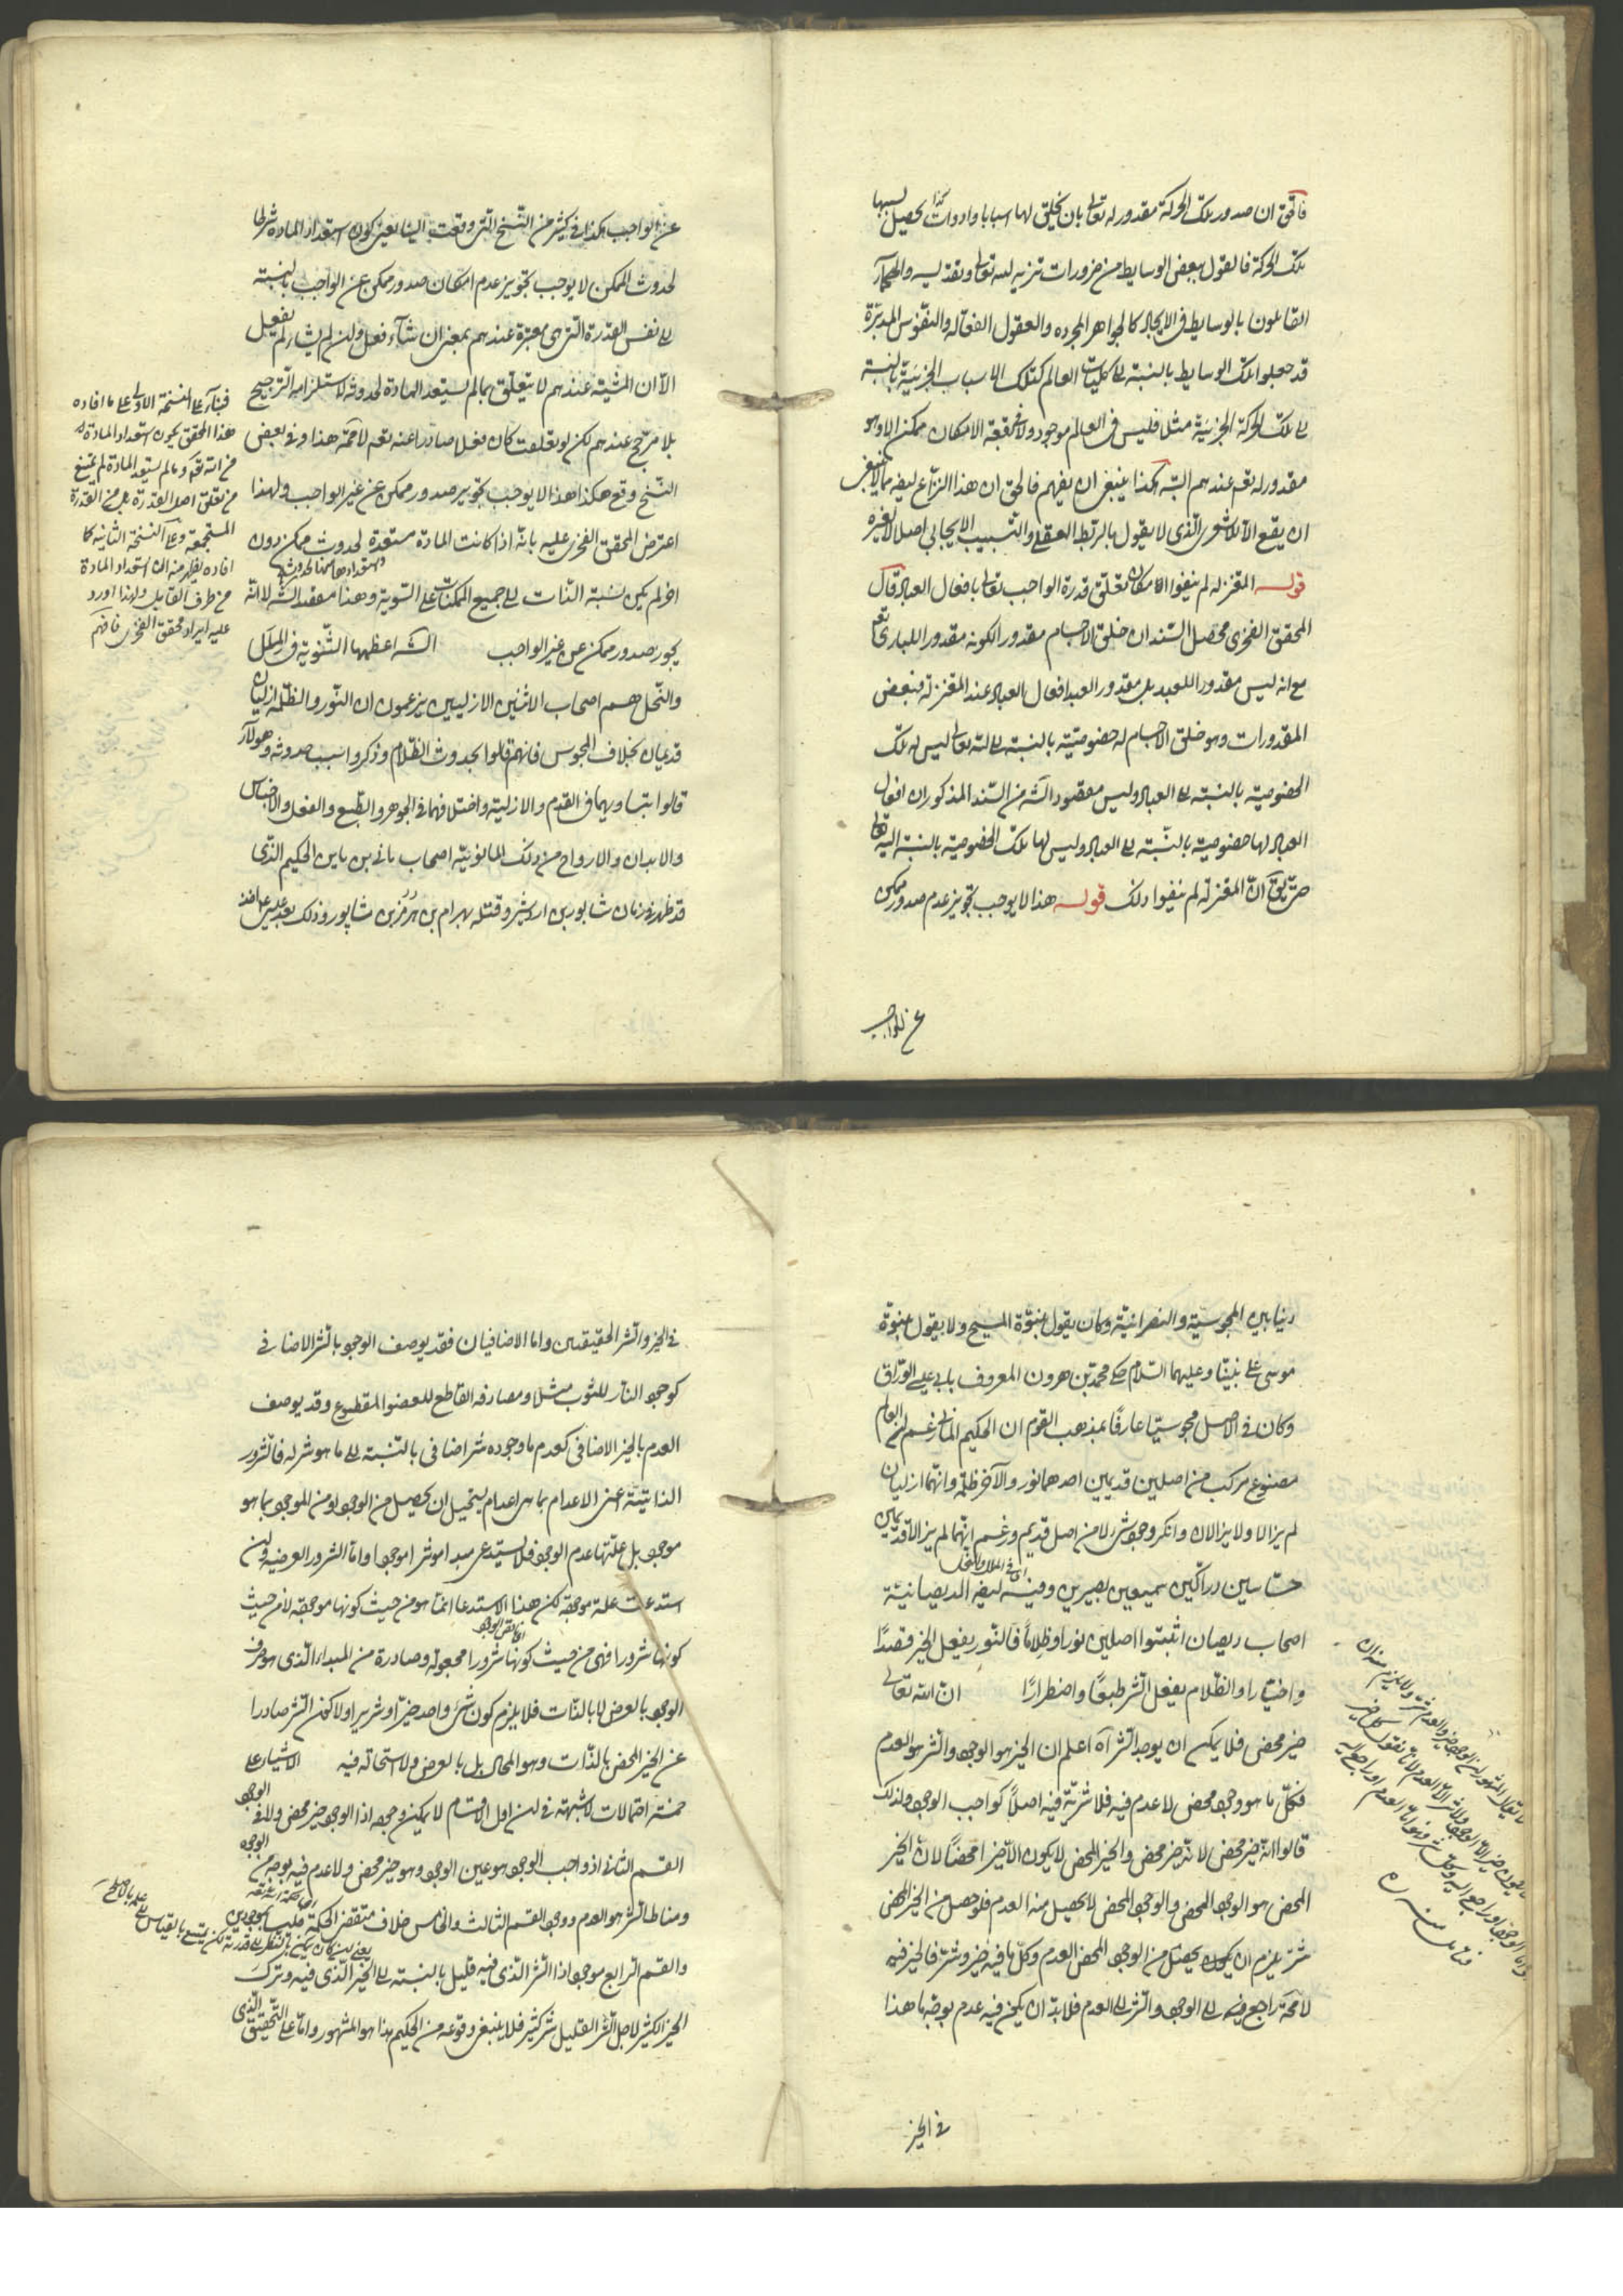 فالحق ان صدور تلك الحركة مقدور له تعالى بان يخلق لها اسبابا وادوات كذا يحصل بسببها
تلك الحركة فالقول ببعض الوسايط من ضرورات تنزيه الله تعالى وتقديسه والحكماء
القايلون بالوسايط في الايجاد كالجواهر المجرده والعقول الفعاله والنفوس المدبرة
قد جعلوا تلك الوسايط بالنسبة الى كليات العالم كتلك الاسباب الجزئية بالنسبة
الى تلك الحركة الجزئية مثلا فليس في العالم موجود ولا في بقعة الامكان ممكن الا وهو
مقدور له تعالى عندهم البتة هكذا ينبغي ان يفهم فالحق ان هذا النزاع ايضا مما لا ينبغي
ان يقع الا للاشعري الذي لا يقول بالربط العقلي والتسبيب الايجابي اصلا لا لغيره
قوله المعتزله لم ينفوا امكان تعلق قدرة الواجب تعالى بافعال العباد قال
المحقق الفخري محصل السند ان خلق الاجسام مقدور الكونه مقدورا للباري تعالى
مع انه ليس مقدورا للعبد بل مقدور العبد افعال العباد عند المعتزلة فبعض
المقدورات وهو خلق الاجسام له خصوصية بالنسبة الى الله تعالى ليس له تلك
الخصوصية بالنسبة الى العباد وليس مقصود الش من السند المذكور ان افعال
العباد لها خصوصية بالنسبة الى العباد وليس لها تلك الخصوصية بالنسبة اليه تعالى
حتى يقال ان المعتزلة لم ينفوا ذلك قوله هذا لا يوجب تجويز عدم صدور ممكن
عن الواجب
عن الواجب هكذا في كثير من النسخ التي وقعت الينا يعني كون استعداد المادة شرطا
لحدوث الممكن لا يوجب تجويز عدم امكان صدور ممكن عن الواجب بالنسبة
الى نفس القدرة التي هي معتبرة عندهم بمعنى ان شاء فعل وان لم يشاء لم يفعل
الا ان المشية عندهم لا يتعلق بما لم يستعد المادة لحدوثه لاستلزامه الترجيح
بلا مرجح عندهم لكن لو تعلقت كان فعلا صادرا عنه تعالى لا محمة هذا وفي بعض
النسخ وقع هكذا هذا لا يوجب تجويز صدور ممكن عن غير الواجب ولهذا
اعترض المحقق الفخري عليه بانه اذا كانت المادة مستعدة لحدوث ممكن دون
واستعدادها ممكنا لحدوثه
اخر لم يكن نسبة الذات الى جميع الممكنات على السوية وهنا مقصد الش لا انه
يجوز صدور ممكن عن غير الواجب الش اعظمها الثنوية في الملل
والنحل هم اصحاب الاثنين الازليين يزعمون ان النور والظلمة ازليان
قديمان بخلاف المجوس فانهم قالوا بحدوث الظلام وذكروا سبب حدوثه وهولاء
قالوا بتساويهما في القدم والازلية واختلافهما في الجوهر والطبع والفعل والاجناس
والابدان والارواح من ذلك المانوية اصحاب ماني بن باين الحكيم الذي
قد ظهر في زمان شابور بن اردشير وقتله بهرام بن هرمز بن شاپور وذلك بعد عيسى ع اخذ
فبناء على النسخة الاولى على ما افاده
هذا المحقق يكون استعداد المادة له
من الله تعالى وما لم يستعد المادة لم يمتنع
من تعلق اصل القدرة بل من القدرة
المستجمعة وعلى النسخة الثانية كما
افاده يظهر منه ان استعداد المادة
من طرف القابل ولهذا اورد
عليه ايراد محقق الفخري فافهم
دينا بين المجوسية والنصرانية وكان يقول بنبوة المسيح ولا يقول بنبوة
موسى على نبينا وعليهما السلام حكى محمد بن هرون المعروف بابي عيسى الوراق
وكان في الاصل مجوسيا عارفا بمذهب القوم ان الحكيم الماني زعم ان العالم
مصنوع مركب من اصلين قديمين احدهما نور والآخر ظلمة وانهما ازليان
لم يزالا ولا يزالان وانكر وجود شيء لا من اصل قديم وزعم انهما لم يزالا قديمين
اي في الملل والنحل
حساسين دراكين سميعين بصيرين وفيه ايضا الديصانية
اصحاب ديصان اثبتوا اصلين نورا وظلاما فالنور يفعل الخير قصدا
واختيارا والظلام يفعل الشر طبعا واضطرارا ان الله تعالى
خير محض فلا يمكن ان يوجد الشر اه اعلم ان الخير هو الوجود والشر هو العدم
فكل ما هو وجود محض لا عدم فيه فلا شرية فيه اصلا كواجب الوجود ولذلك
قالوا انه خير محض لانه خير محض والخير المحض لا يكون الا خيرا محضا لان الخير
المحض هو الوجود المحض والوجود المحض لا يحصل منه العدم فلو حصل من الخير المحض
شر يلزم ان يكون يحصل من الوجود المحض العدم وكل ما فيه خير وشر فالخير فيه
لا محة راجع فيه الى الوجود والشر الى العدم فلا بد ان يكون فيه عدم بوجه ما هذا
في الخير
في الخير والشر الحقيقيين واما الاضافيان فقد يوصف الوجود بالشر الاضافي
كوجود النار للثوب مثلا ومصادفة القاطع للعضو المقطوع وقد يوصف
العدم بالخير الاضافي كعدم ما وجوده شر اضافي بالنسبة الى ما هو شر له فالشرور
الذاتية اعني الاعدام بما هي اعدام يستحيل ان يحصل من الوجود او من الموجود بما هو
موجود بل علتها عدم الوجود فلا يستدعي مبداء موثرا موجودا واما الشرور العرضية وان
استدعت علة موجوة لكن هذا الاستدعا انما هو من حيث كونها موجوة لا من حيث
كونها شرورا فهي من حيث كونها شرورا مجعوله وصادرة من المبداء الذي هو صرف
الوجود بالعرض لا بالذات فلا يلزم كون شيء واحد خيرا وشريرا ولا كون الشر صادرا
عن الخير المحض بالذات وهو المحال بل بالعرض ولا استحالة فيه الاشياء على
خمسة احتمالات لا شبهة في ان اول الاقسام لا يمكن وجوده اذ الوجود خير محض ولا في الوجود
القسم الثاني اذ واجب الوجود هو عين الوجود وهو خير محض ولا عدم فيه بوجه من الوجوه
ومناط الشر هو العدم ووجود القسم الثالث والخامس خلاف مقتضى الحكمة فليسا بموجودين
والقسم الرابع موجود اذ الشر الذي فيه قليل بالنسبة الى الخير الذي فيه وترك
الخير الكثير لاجل الشر القليل شر كثير فلا ينبغي وقوعه من الحكيم هذا هو المشهور واما على التحقيق الذي